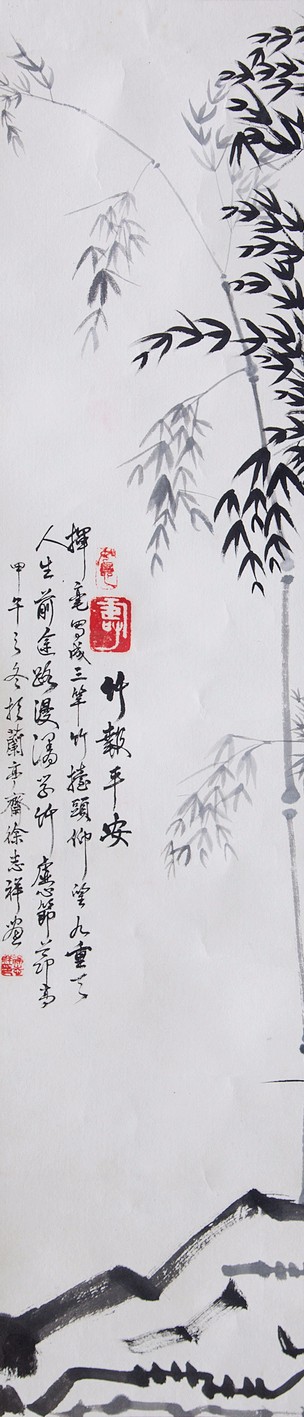 竹報平安
揮毫寫成三竿竹 抬頭仰望九重天
人生前途路漫漫 學竹虛心節節高
甲午之冬於蘭亭齋徐志祥畫
壽